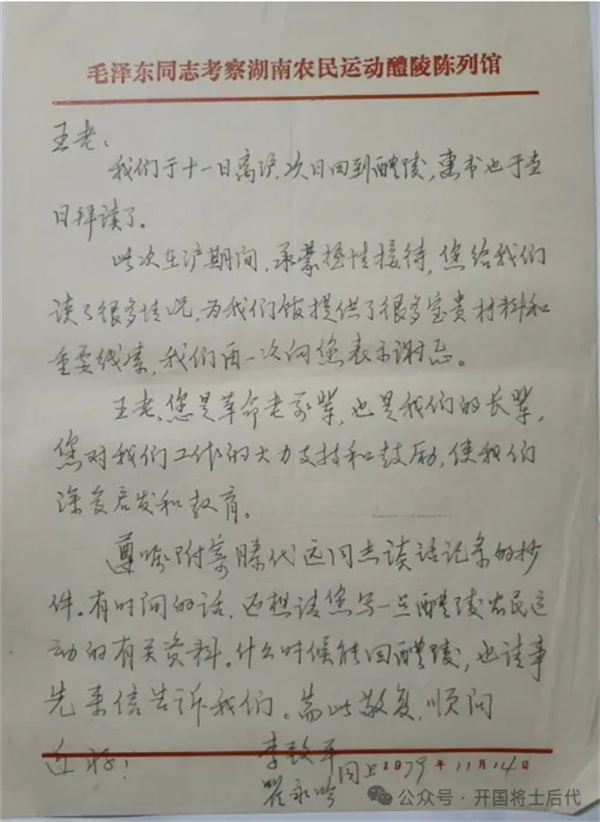 毛泽东同志考察湖南农民运动醴陵陈列馆
王老：
我们于十一日离沪，次日回到醴陵，惠书也于查
日拜读了。
此次在沪期间，承蒙热情接待，您给我们
谈了很多情况，为我们馆提供了很多宝贵材料和
重要线索，我们再一次向您表示谢忱。
王老，您是革命老前辈，也是我们的长辈，
您对我们工作的大力支持和鼓励，使我们
深受启发和教育。
遵嘱附寄滕代远同志谈话记录的抄
件。有时间的话，还想请您写一点醴陵农民运
动的有关资料。什么时候能回醴陵，也请事
先来信告诉我们。耑此敬复，顺问
近好！
李
同上 1979年11月14日
公众号·开国将士后代